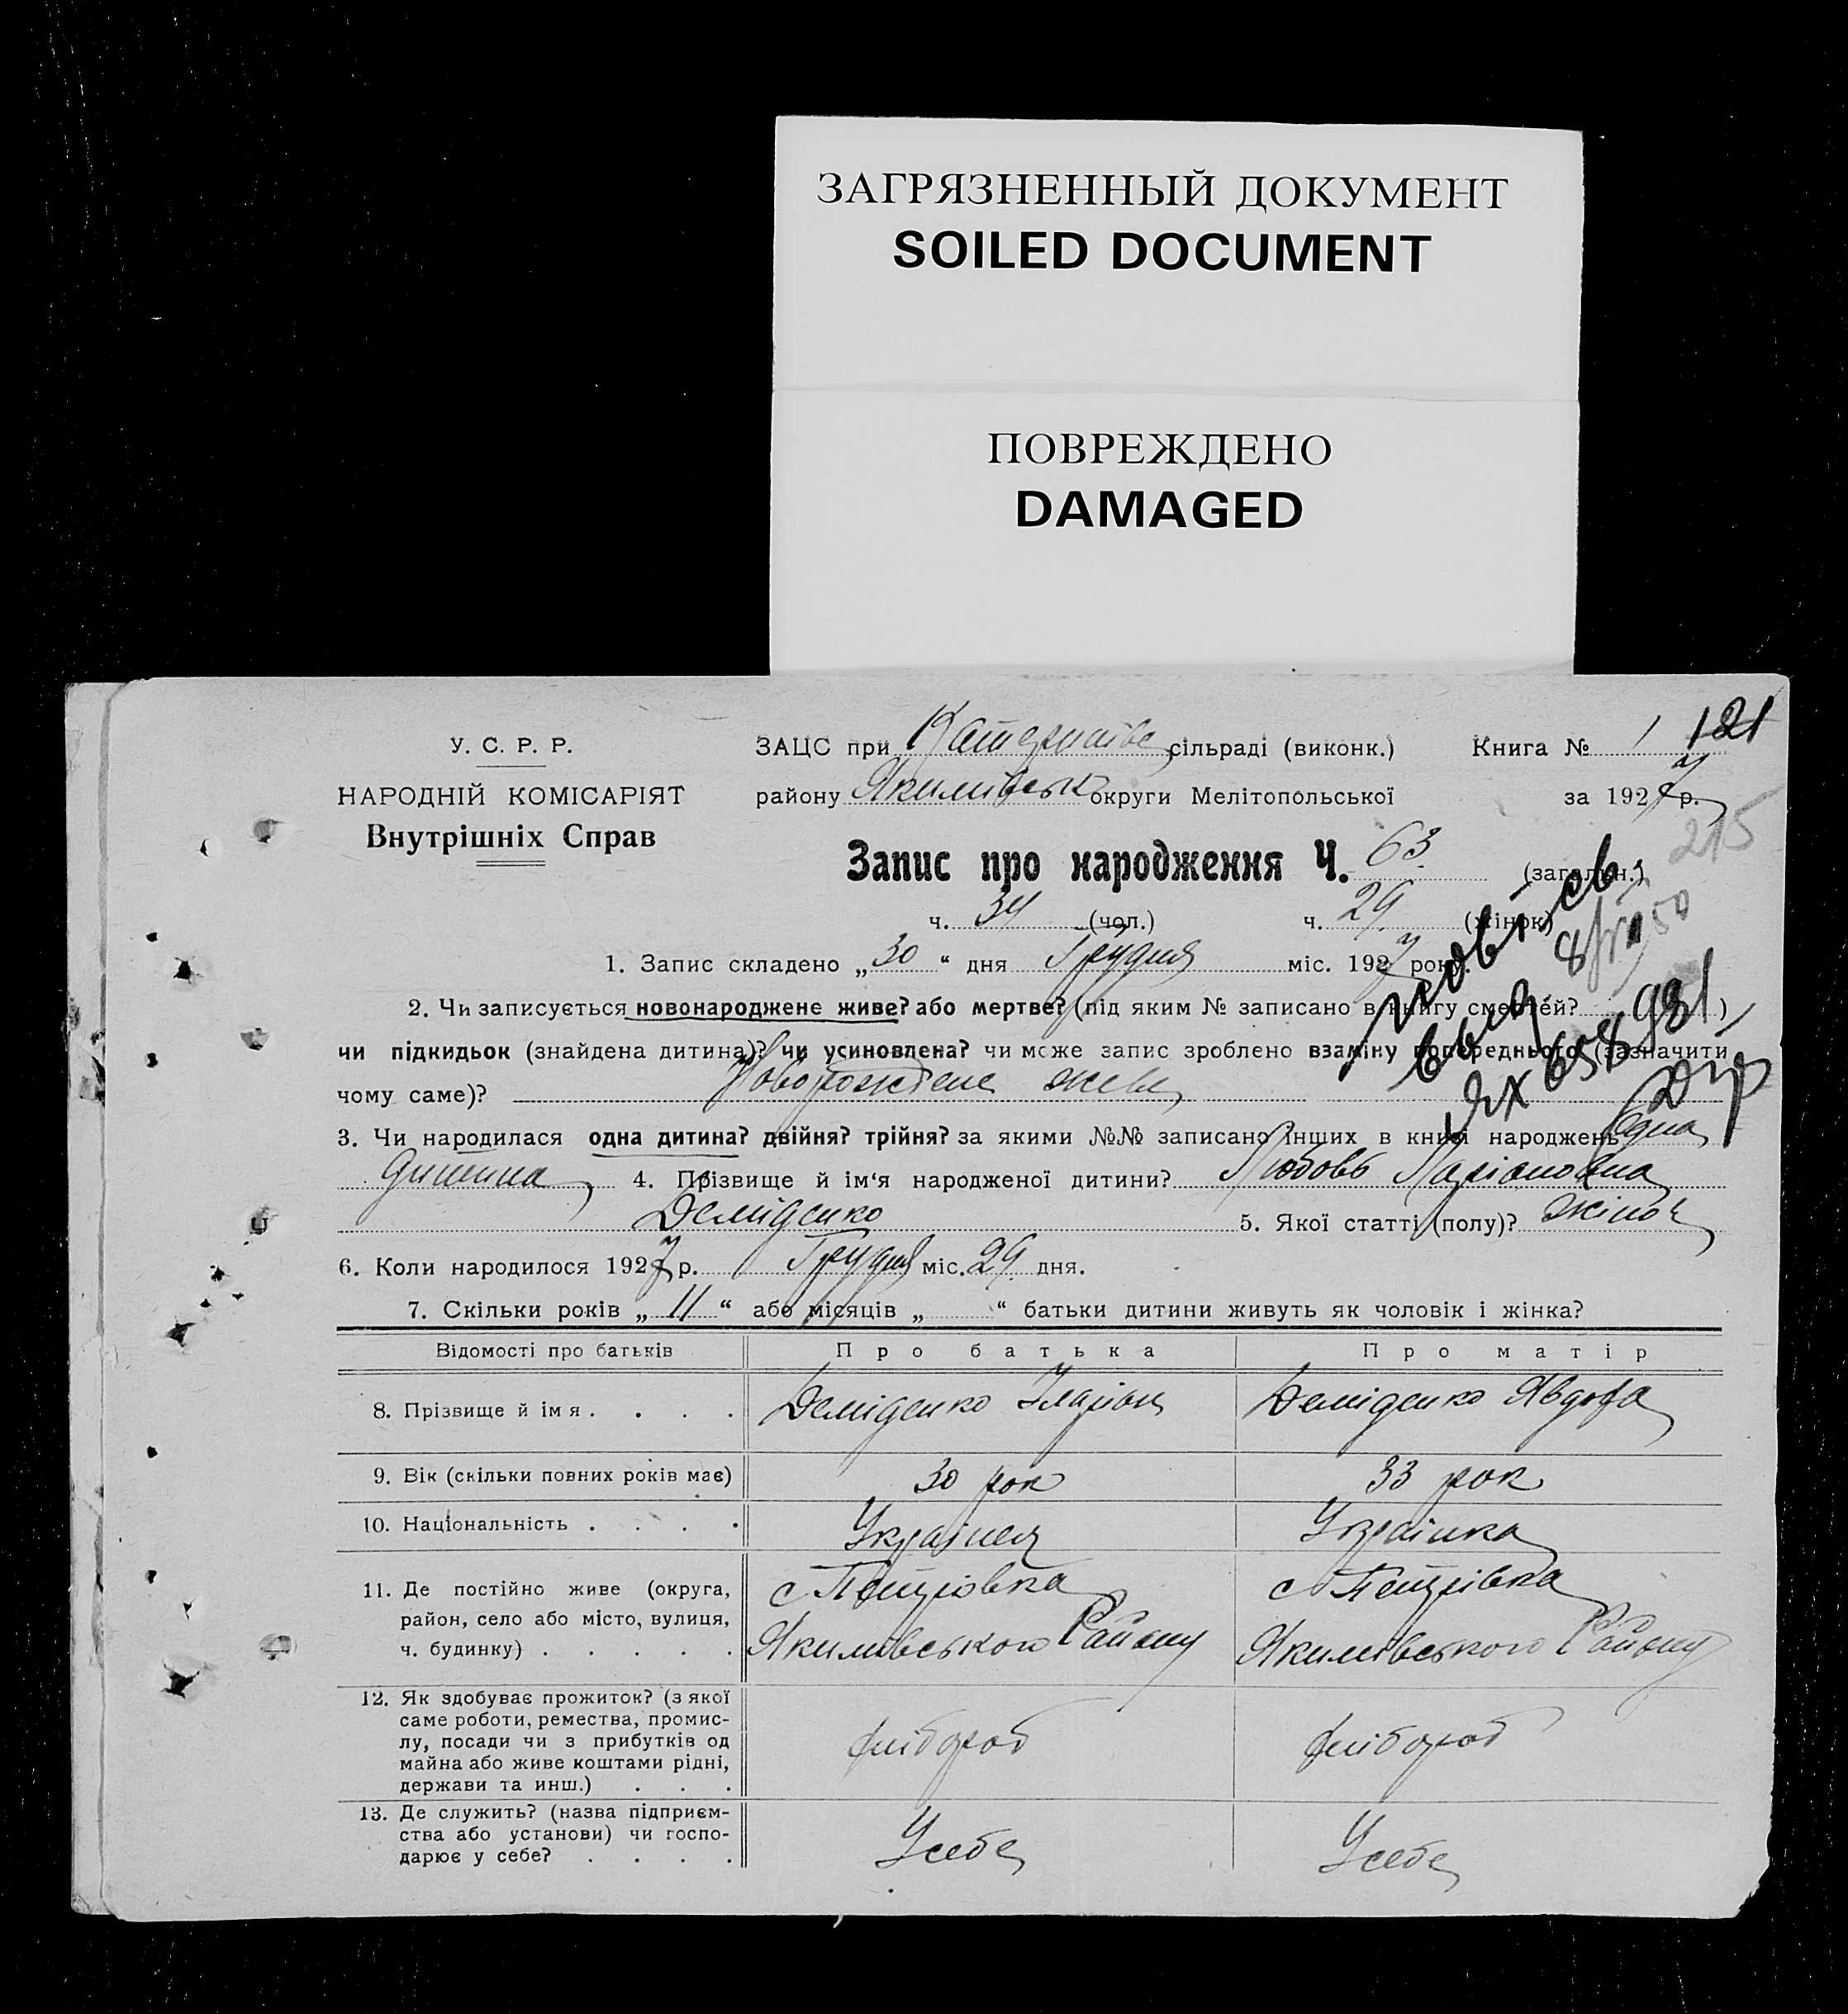 ЗАГРЯЗНЕННЫЙ ДОКУМЕНТ
SOILED DOCUMENT
ПОВРЕЖДЕНО
DAMAGED
У. С. Р. Р.
НАРОДНІЙ КОМІСАРІЯТ
Внутрішніх Справ
ЗАЦС при сільраді (виконк.) Книга № 1 121
району Якимівськ округи Мелітопольської за 1927 р.
215
Запис про народження Ч. 63 (загальн.)
ч. 34 (чол.) ч. 29 (жінок)
1. Запис складено „30“ дня Грудня міс. 1927 року.
2. Чи записується новонароджене живе? або мертве? (під яким № записано в книгу смертей? )
чи підкидьок (знайдена дитина)? чи усиновлена? чи може запис зроблено взаміну попереднього (зазначити
чому саме)? Новорождене живе
повт. св.
выд.
ЯХ 658981
3. Чи народилася одна дитина? двійня? трійня? за якими №№ записано інших в книзі народжень Одна
дитина 4. Прізвище й ім‘я народженої дитини? Любовь Ларіоновна
Деміденко 5. Якої статті (полу)? жіноч
6. Коли народилося 1927 р. Грудня міс. 29 дня.
7. Скільки років „11“ або місяців „ “ батьки дитини живуть як чоловік і жінка?
Відомості про батьків Про батька Про матір
8. Прізвище й імя . . . . Деміденко Іларіон Деміденко Явдоха
9. Вік (скільки повних років має) 30 рок 33 рок
10. Національність . . . . Українец Українка
11. Де постійно живе (округа,
район, село або місто, вулиця,
ч. будинку) . . . . .
с Петрівка
Якимівського Району
с Петрівка
Якимівського Району
12. Як здобуває прожиток? (з якої
саме роботи, ремества, промис-
лу, посади чи з прибутків од
майна або живе коштами рідні,
держави та инш.) . . .
хлібороб хлібороб
13. Де служить? (назва підприєм-
ства або установи) чи госпо-
дарює у себе? . . . .
У себе У себе